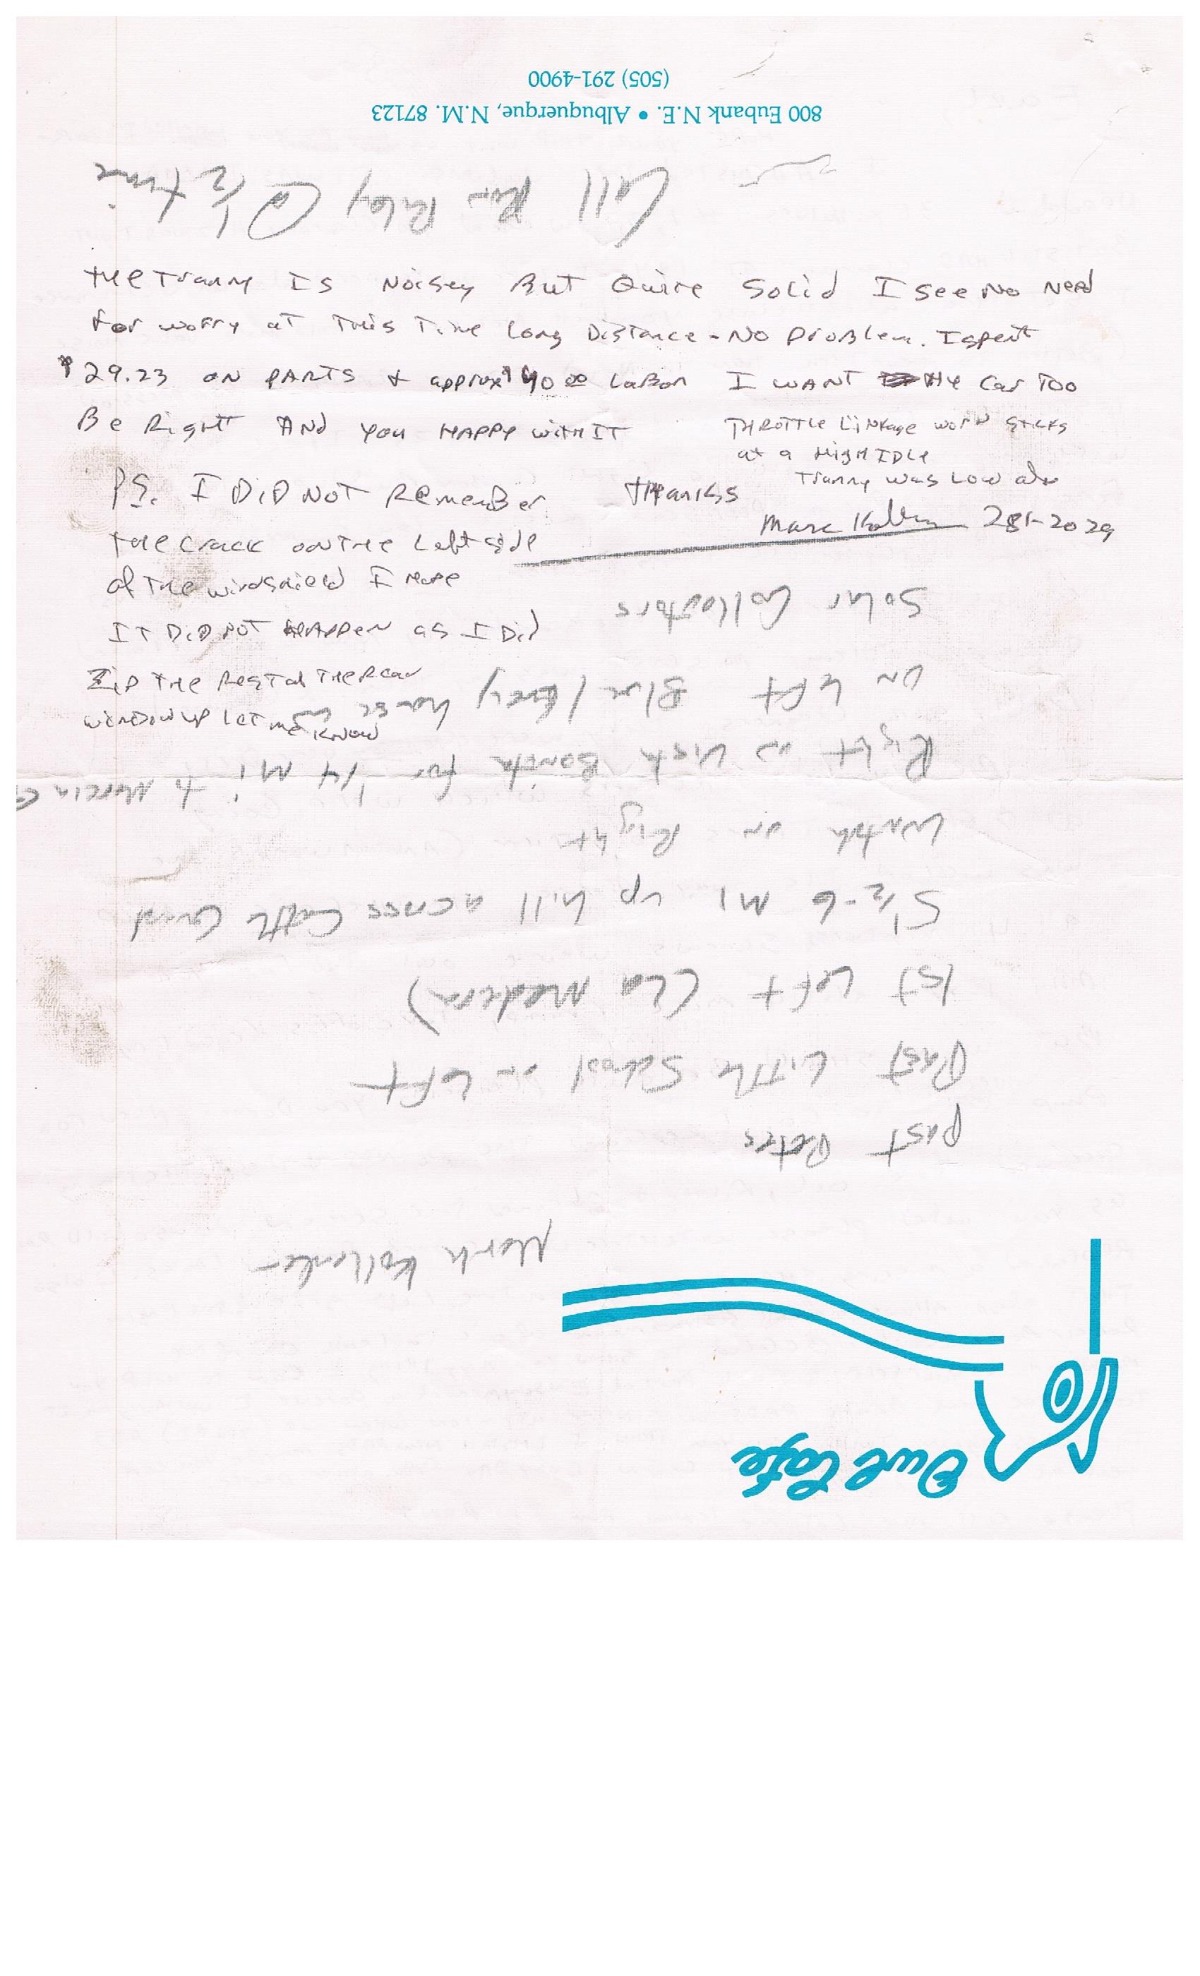 the Tranny Is Noisey But Quite Solid I see No Need
for worry at This Time Long Distance - No Problem. I spent
$29.23 on PARTS & approx $40.00 Labor I WANT the Car Too
Be Right And you HAPPY with IT
THROTTLE Linkage worn sticks
at a High IDLe
Tranny was Low also
thanks
Marc 281-2029
PS. I DiD NOT Remember
the crack on the Left side
of The windshield I Hope
IT DiD NOT HAPPEN as I Did
Zip the Rest of the Rear
window up let me know
Owl Cafe
Mark
past Petes
Past Little School on Left
1st Left (La Madera)
5 1/2 - 6 MI up hill across Cattle Guard
Watch on Right
Right on Vista Bonita for 1/4 Mi to
on Left Blue/Grey house w
Solar Collectors
Call Ron @ 1/2 time
800 Eubank N.E. • Albuquerque, N.M. 87123
(505) 291-4900